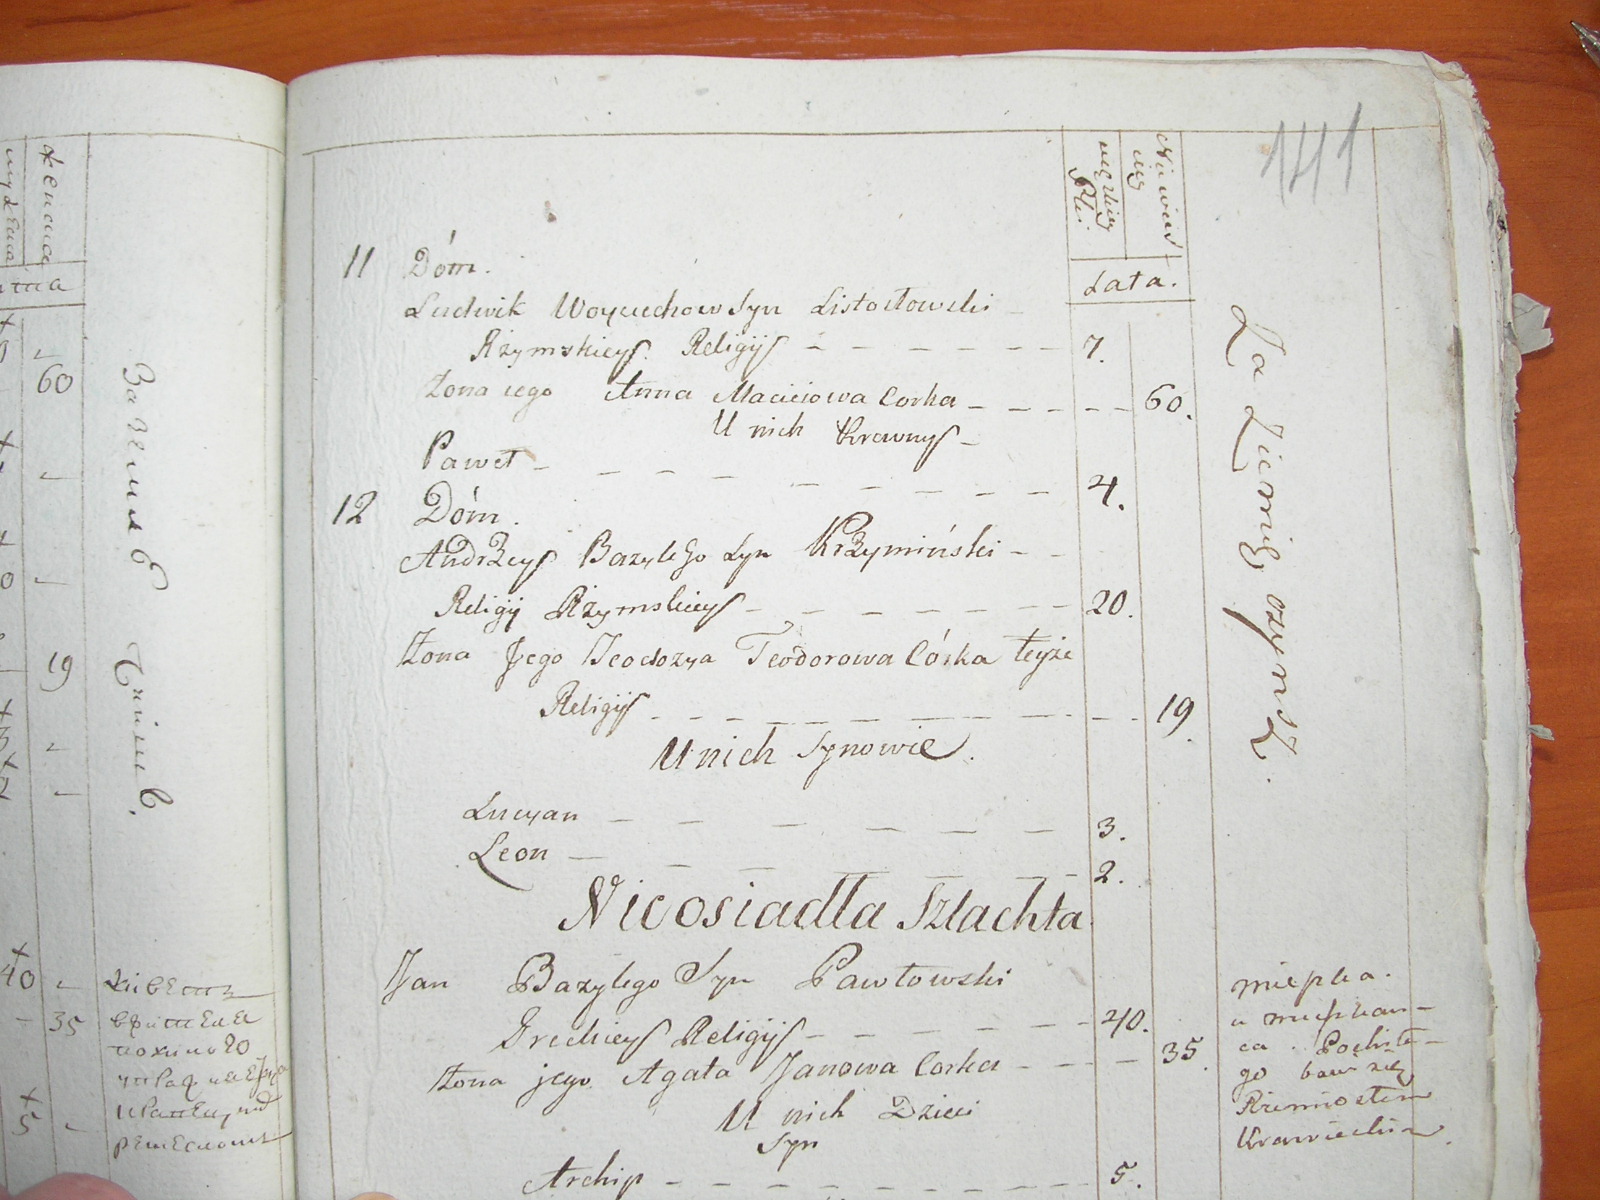 141
męzkiey Płci
Niewieściey
Lata.
11 Dóm.
Ludwik Woyciechow Syn Listosłowski
Rzymskiey Religij 7.
Żona iego Anna Macieiowa Corka 60.
U nich Krewny
Paweł 4.
12 Dóm.
Andrzey Bazylego Syn Krzymiński
Religij Rzymskiey 20.
Żona Jego Teodozya Teodorowa Córka teyże
Religij 19.
U nich Synowie.
Lucyan 3.
Leon 2.
Nieosiadła Szlachta
Jan Bazylego Syn Pawłowski
Greckiey Religij 40.
Żona jego Agata Janowa Corka 35.
U nich Dzieci
Syn
Archip 5.
Za Ziemię czynsz.
mieszka.
u mieszkań-
ca. Pochiłe-
go bawi się
Rzemiosłem
Krawieckim.
женска
60
19
40
35
5
За землю чиншъ.
живетъ